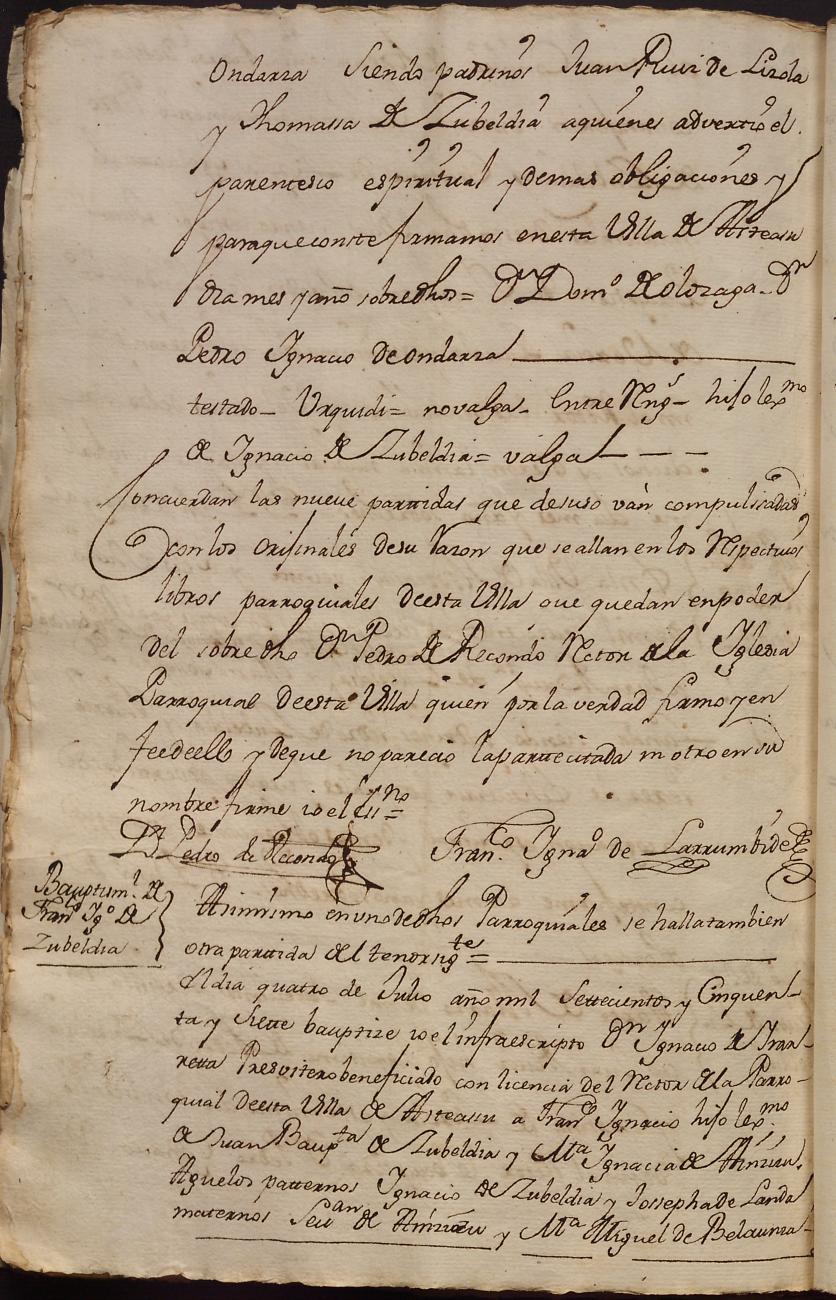 Ondarra Siendo padrinos Juan Ruiz de Lizola
y Thomassa de Zubeldia aquienes advertio el
parentesco espiritual y demas obligaciones y
paraque conste firmamos enesta Villa de Asteasu
dia mes y año sobredhos= Dn Domo de olozaga - Dn
Pedro Ignacio de ondarra
testado - Urquidi = no valga - Entre Rengs - hijo lexmo
de Ignacio de Zubeldia = valga
Concuerdan las nueve partidas que desuso ván compulssadas
con los originales desu razon que se allan en los Respectivos
libros parroquiales deesta Villa que quedan enpoder
del sobredho Dn Pedro de Recondo Retor de la Iglesia
Parroquial deesta Villa quien por la verdad firmo y en
fee deello y deque no parecio la parte citada ni otro en su
nombre firme io el Essno =
Dn Pedro de Recondo Franco Ignao de Larrumbide
Bauptismo de
Franco Igo de
Zubeldia
Asimismo en uno de dhos Parroquiales se halla tambien
otra partida del tenor sigte =
El dia quatro de Julio año mil Settecientos y Cinquen-
ta y Siette bauptize io el infraescripto Dn Ignacio de
Presvitero beneficiado con licencia del Retor de la Parro-
quial deesta Villa de Asteasu a Franco Ignacio hijo lexmo
de Juan Baupta de Zubeldia y Ma Ignacia de Aminizu.
Aguelos patternos Ignacio de Zubeldia y Josepha de Landa
maternos Sevan de Aminizu y Ma Miguel de Belaunza